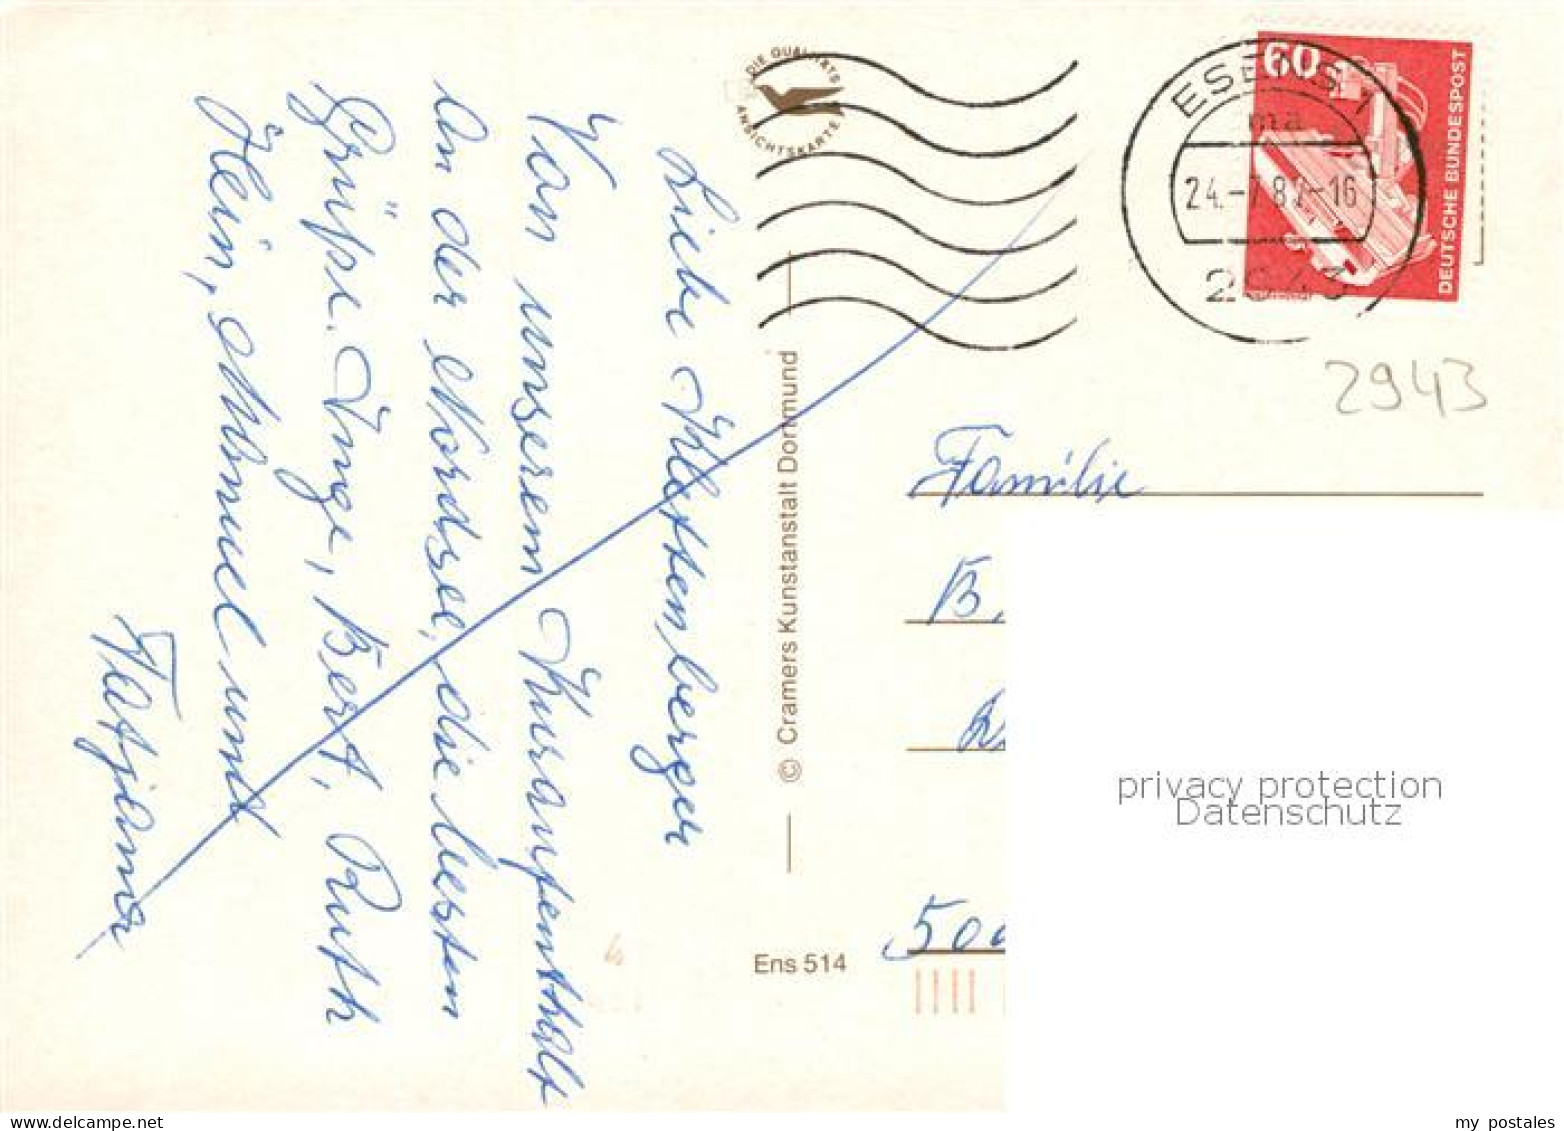 Liebe Klettenberger
Von unserem Kuraufenthalt
An der Nordsee, die besten
Grüße. Inge, Bert, Ruth
Hein, Manuel und
Tatjana
DIE QUALITÄTS
ANSICHTSKARTE
© Cramers Kunstanstalt Dortmund
Ens 514
ESENS 1
24.-7.87-16
2943
60
DEUTSCHE BUNDESPOST
2943
Familie
B.
500
privacy protection
Datenschutz
www.delcampe.net
my_postales